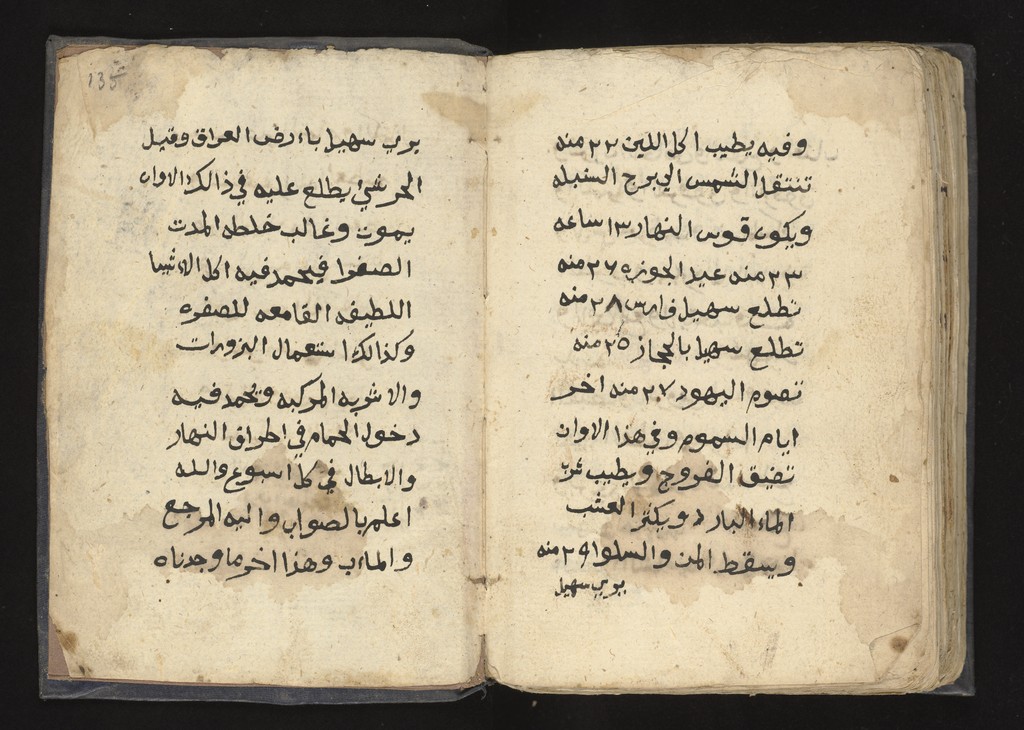 وفيه يطيب اكل اللبن ٢٢ منه
تنتقل الشمس الي برج السنبله
ويكون قوس النهار ١٣ ساعه
٢٣ منه عيد الجوزه ٢٦ منه
تطلع سهيل فارس ٢٨ منه
تطلع سهيل بالحجاز ٢٥ منه
تصوم اليهود ٢٧ منه اخر
ايام السموم وفي هذا الاوان
تضيق الفروج ويطيب شرب
الماء البارد ويكثر العشب
ويسقط المن والسلوا ٢٩ منه
يري سهيل
135
يري سهيل باءرض العراق وقيل
اكثر شئ يطلع عليه في ذالك الاوان
يموت وغالب خلطه المدت
الصفرا فيحمد فيه اكل الاشيا
اللطيفه القامعه للصفره
وكذالك استعمال البزورات
والاشربه المركبه ويحمد فيه
دخول الحمام في اطراف النهار
والابطال في كل اسبوع والله
اعلم بالصواب واليه المرجع
والماءب وهذا اخر ما وجدناه